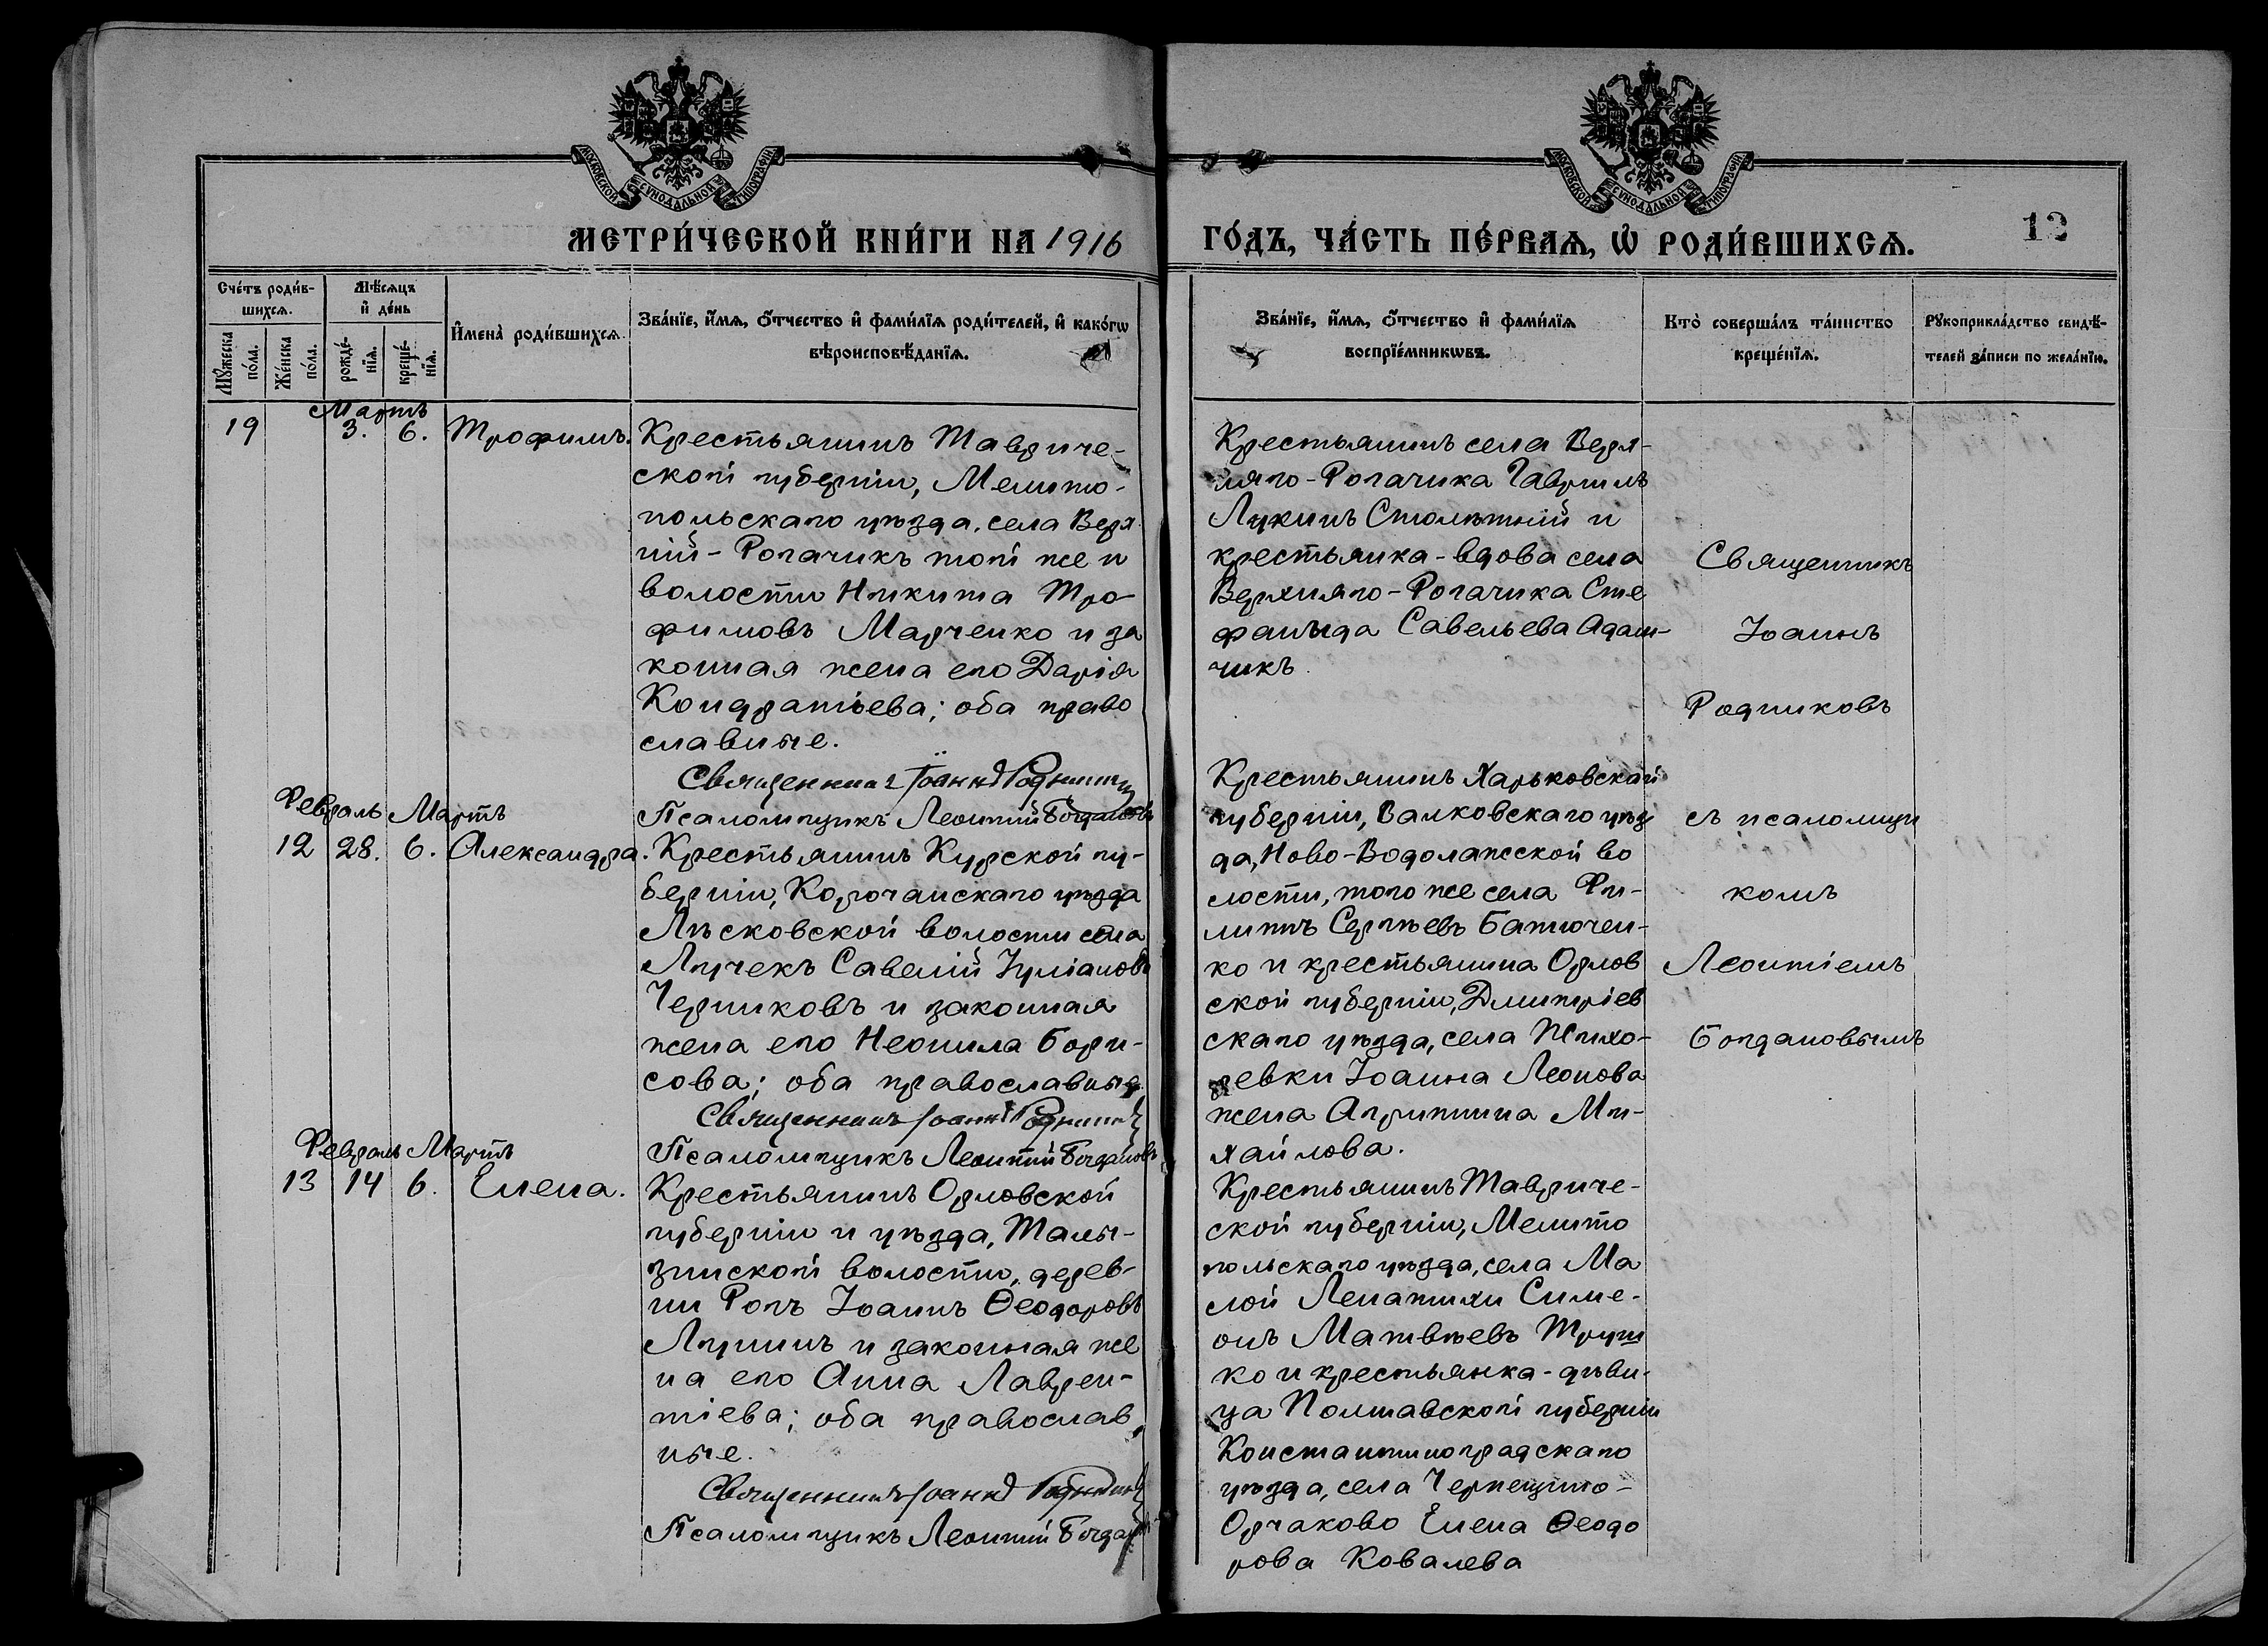 МОСКОВСКОЙ СѴНОДАЛЬНОЙ ТИПОГРАФІИ
МОСКОВСКОЙ СѴНОДАЛЬНОЙ ТИПОГРАФІИ
МЕТРИ́ЧЕСКОЙ КНИ́ГИ НА 1916
ГО́ДЪ, ЧА́СТЬ ПЕ́РВАѦ, Ѽ РОДИ́ВШИХСѦ.
12
Сче́тъ роди́в-
шихсѧ.
Мѣ́сѧцъ
и҆ де́нь
Мꙋ́жеска
по́ла.
Же́нска
по́ла.
рожде́-
нїѧ.
креще́-
нїѧ.
И҆мена̀ роди́вшихсѧ.
Зва́нїе, и҆́мѧ, ѻ҆́тчество и҆ фами́лїѧ роди́телей, и҆ како́гѡ
вѣроисповѣ́данїѧ.
Зва́нїе, и҆́мѧ, ѻ҆́тчество и҆ фами́лїѧ
воспрїе́мникѡвъ.
Кто̀ соверша́лъ та́инство
креще́нїѧ.
Рꙋкоприкла́дство свидѣ́-
телей за́писи по жела́нїю.
Мартъ
19 3. 6. Трофимъ.
Крестьянинъ Тавриче-
ской губерніи, Мелито-
польскаго уѣзда, села Верх
ній-Рогачикъ той же и
волости Никита Тро-
фимовъ Марченко и за
конная жена его Дарія
Кондратіева; оба право
славные.
Священникъ Іоаннъ Родниковъ
Псаломщикъ Леонтій Богдановъ
Крестьянинъ села Верх-
няго-Рогачика Гавриилъ
Лукинъ Столѣтній и
крестьянка-вдова села
Верхняго-Рогачика Сте
фанида Савельева Адам-
чикъ.
Священникъ
Іоаннъ
Родниковъ
съ псаломщи
комъ
Леонтіемъ
Богдановымъ
Февраль Мартъ
12 28. 6. Александра.
Крестьянинъ Курской гу-
берніи, Корочанскаго уѣзда
Лѣсковской волости села
Лучекъ Савелій Іуліановъ
Черниковъ и законная
жена его Неонила Бори-
сова; оба православные
Священникъ Іоаннъ Родниковъ
Псаломщикъ Леонтій Богдановъ
Крестьянинъ Харьковской
губерніи, Валковскаго уѣз
да, Ново-Водолажской во
лости, того же села Фи-
липпъ Сергѣевъ Батючен-
ко и крестьянина Орлов
ской губерніи, Дмитріев
скаго уѣзда, села Жихо-
ревки Іоанна Леонова
жена Агриппина Ми-
хайлова.
Февраль Мартъ
13 14 6. Елена.
Крестьянинъ Орловской
губерніи и уѣзда, Талы-
зинской волости, дерев-
ни Рогъ Іоаннъ Ѳеодоровъ
Лунинъ и законная же
на его Анна Лаврен-
тіева; оба православ
ные.
Священникъ Іоаннъ Родниковъ
Псаломщикъ Леонтій Богданов
Крестьянинъ Тавриче-
ской губерніи, Мелито
польскаго уѣзда, села Ма
лой Лепатихи Симе-
онъ Матвѣевъ Труш
ко и крестьянка-дѣви-
ца Полтавской губерніи
Константиноградскаго
уѣзда, села Чернещино-
Орчаково Елена Ѳеодо
рова Ковалева